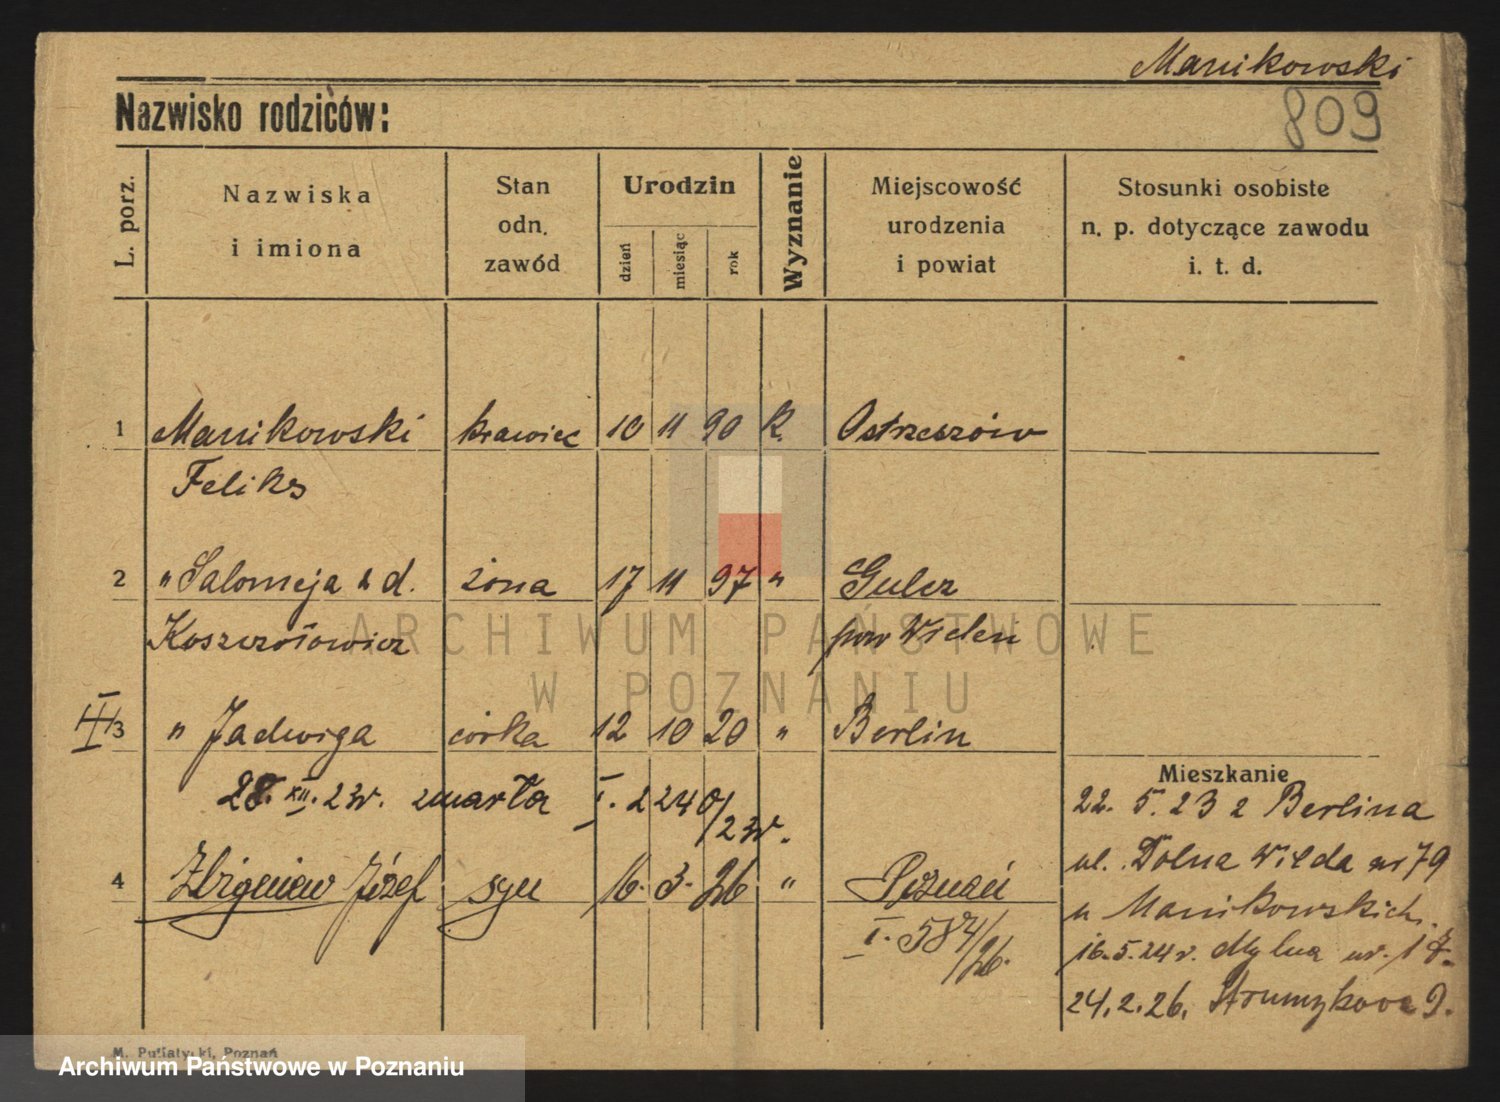 Manikowski
Nazwisko rodziców:
809
L. porz.
Nazwiska
i imiona
Stan
odn.
zawód
Urodzin
dzień
miesiąc
rok
Wyznanie
Miejscowość
urodzenia
i powiat
Stosunki osobiste
n. p. dotyczące zawodu
i. t. d.
1 Manikowski krawiec 10 11 90 k. Ostrzeszów
Feliks
2 " Salomeja z d. żona 17 11 97 " Gulcz
pow Wieleń
ARCHIWUM PAŃSTWOWE
W POZNANIU
3 " Jadwiga córka 12 10 20 " Berlin
28. XII. 23r. zmarła I. 2240/23r.
4 Zbigniew Józef syn 16. 3. 26 " Poznań
I. 584/26.
Mieszkanie
22. 5. 23 z Berlina
ul. Dolna Wilda nr 79
u Manikowskich.
16.5.24r. Mylna nr. 17.
24.2.26. Strumykowa 9.
M. Putiatycki, Poznań
Archiwum Państwowe w Poznaniu